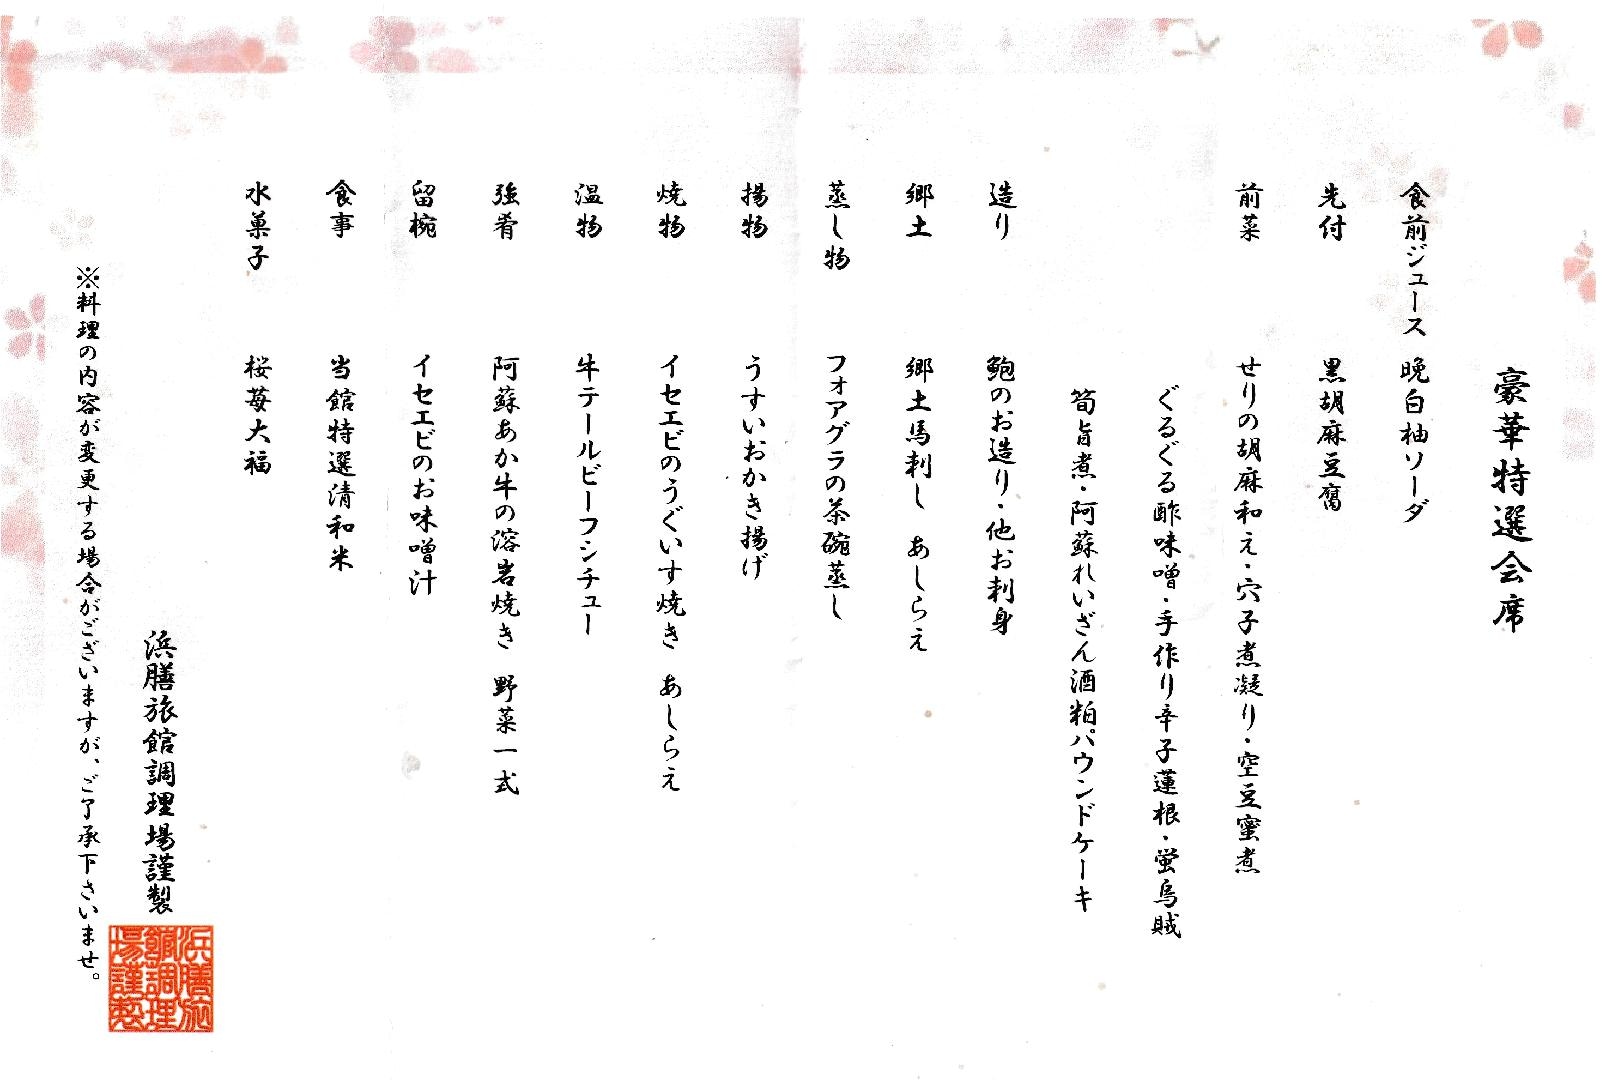 豪華特選会席
食前ジュース 晩白柚ソーダ
先付 黒胡麻豆腐
前菜 せりの胡麻和え・穴子煮凝り・空豆蜜煮
ぐるぐる酢味噌・手作り辛子蓮根・蛍烏賊
筍旨煮・阿蘇れいざん酒粕パウンドケーキ
造り 鮑のお造り・他お刺身
郷土 郷土馬刺し あしらえ
蒸し物 フォアグラの茶碗蒸し
揚物 うすいおかき揚げ
焼物 イセエビのうぐいす焼き あしらえ
温物 牛テールビーフシチュー
強肴 阿蘇あか牛の溶岩焼き 野菜一式
留椀 イセエビのお味噌汁
食事 当館特選清和米
水菓子 桜苺大福
浜膳旅館調理場謹製
浜膳旅
館調理
場謹製
※料理の内容が変更する場合がございますが、ご了承下さいませ。